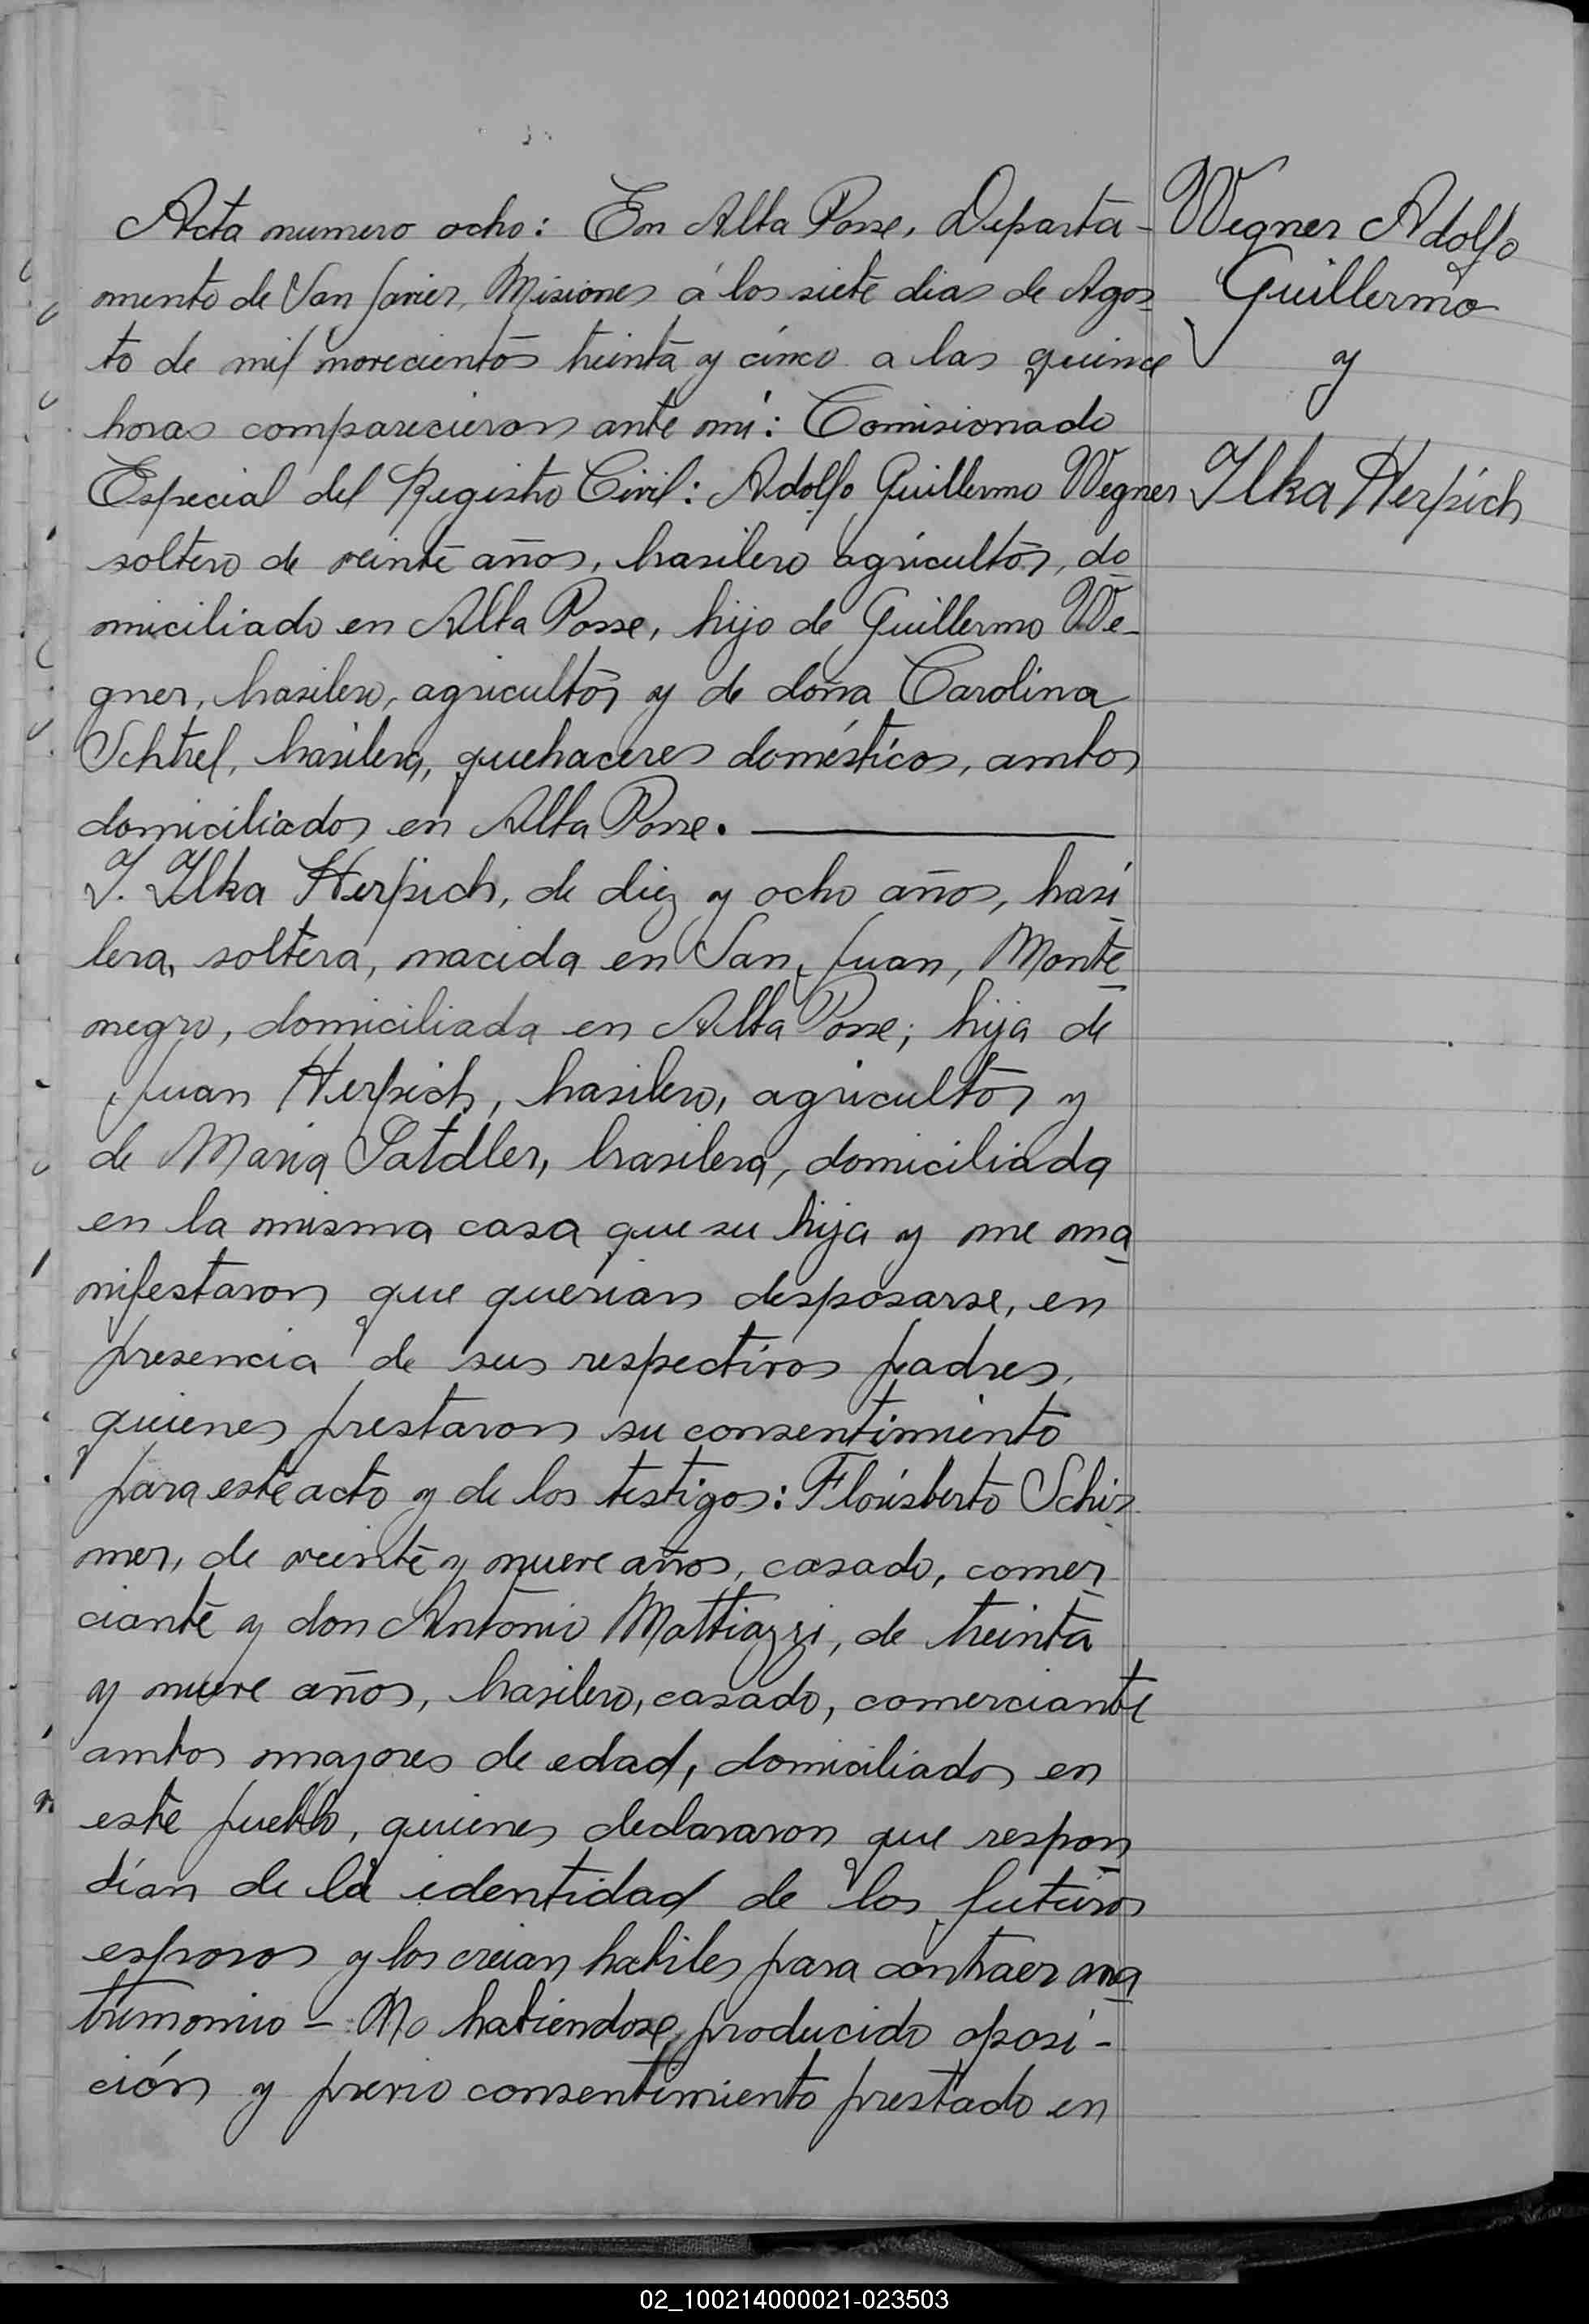 Acta numero ocho: En Alba Posse, Departa-
mento de San Javier, Misiones á los siete dias de Agos
to de mil novecientos treinta y cinco a las quince
horas comparecieron ante mi: Comisionado
Especial del Registro Civil: Adolfo Guillermo Wegner
soltero de veinte años, brasilero agricultor, do
miciliado en Alba Posse, hijo de Guillermo We-
gner, brasilero, agricultor y de doña Carolina
Schtrel, brasilera, quehaceres domésticos, ambos
domiciliados en Alba Posse.
I. Ilka Herpich, de diez y ocho años, brasi
lera, soltera, nacida en San Juan, Monte
negro, domiciliada en Alba Posse; hija de
Juan Herpich, brasilero, agricultor y
de Maria Satdler, brasilera, domiciliada
en la misma casa que su hija y me ma
nifestaron que querian desposarse, en
presencia de sus respectivos padres,
quienes prestaron su consentimiento
para este acto y de los testigos: Florisberto Schir
mer, de veinte y nueve años, casado, comer
ciante y don Antonio Mattiazzi, de treinta
y nueve años, brasilero, casado, comerciante
ambos mayores de edad, domiciliados en
este pueblo, quienes declararon que respon
dían de la identidad de los futuros
esposos y los creian habiles para contraer ma
trimonio - No habiendose producido oposi-
ción y previo consentimiento prestado en
Wegner Adolfo
Guillermo
y
Ilka Herpich
02_100214000021-023503